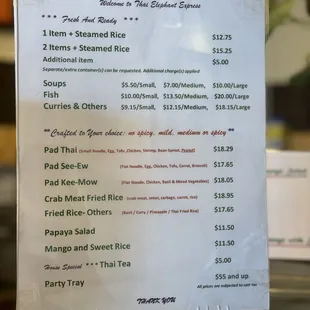 Welcome to Thai Elephant Express
*** Fresh And Ready ***
1 Item + Steamed Rice $12.75
2 Items + Steamed Rice $15.25
Additional item $5.00
Separate/extra container(s) can be requested. Additional charge(s) applied
Soups $5.50/Small, $7.00/Medium, $10.00/Large
Fish $10.00/Small, $13.50/Medium, $20.00/Large
Curries & Others $9.15/Small, $12.15/Medium, $18.15/Large
**Crafted to Your choice: no spicy, mild, medium or spicy**
Pad Thai (Small Noodle, Egg, Tofu, Chicken, Shrimp, Bean Sprout, Peanut) $18.29
Pad See-Ew (Flat Noodle, Chicken, Egg, Tofu, Carrot, Broccoli) $17.65
Pad Kee-Mow (Flat Noodle, Chicken, Basil & Mixed Vegetables) $18.05
Crab Meat Fried Rice (Crab meat, onion, carrot, rice) $18.95
Fried Rice- Others (Basil / Curry / Pineapple / Thai Fried Rice) $17.65
Papaya Salad $11.50
Mango and Sweet Rice $11.50
House Special *** Thai Tea $5.00
Party Tray $55 and up
All prices are subjected to sale tax
THANK YOU